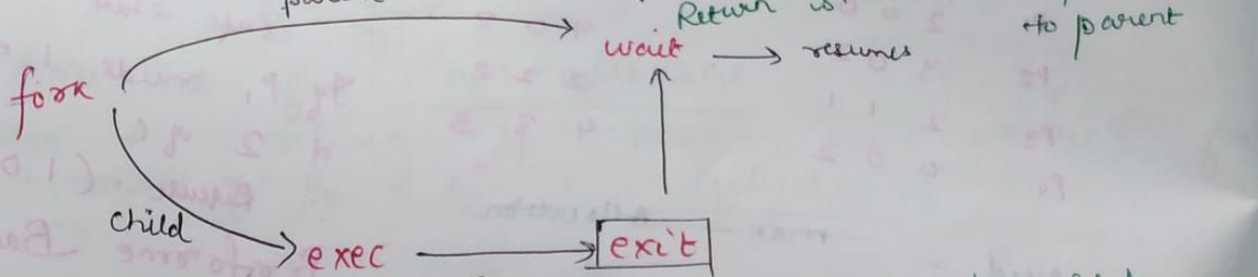 Return is to parent
wait → resumes
fork
child
exec → exit